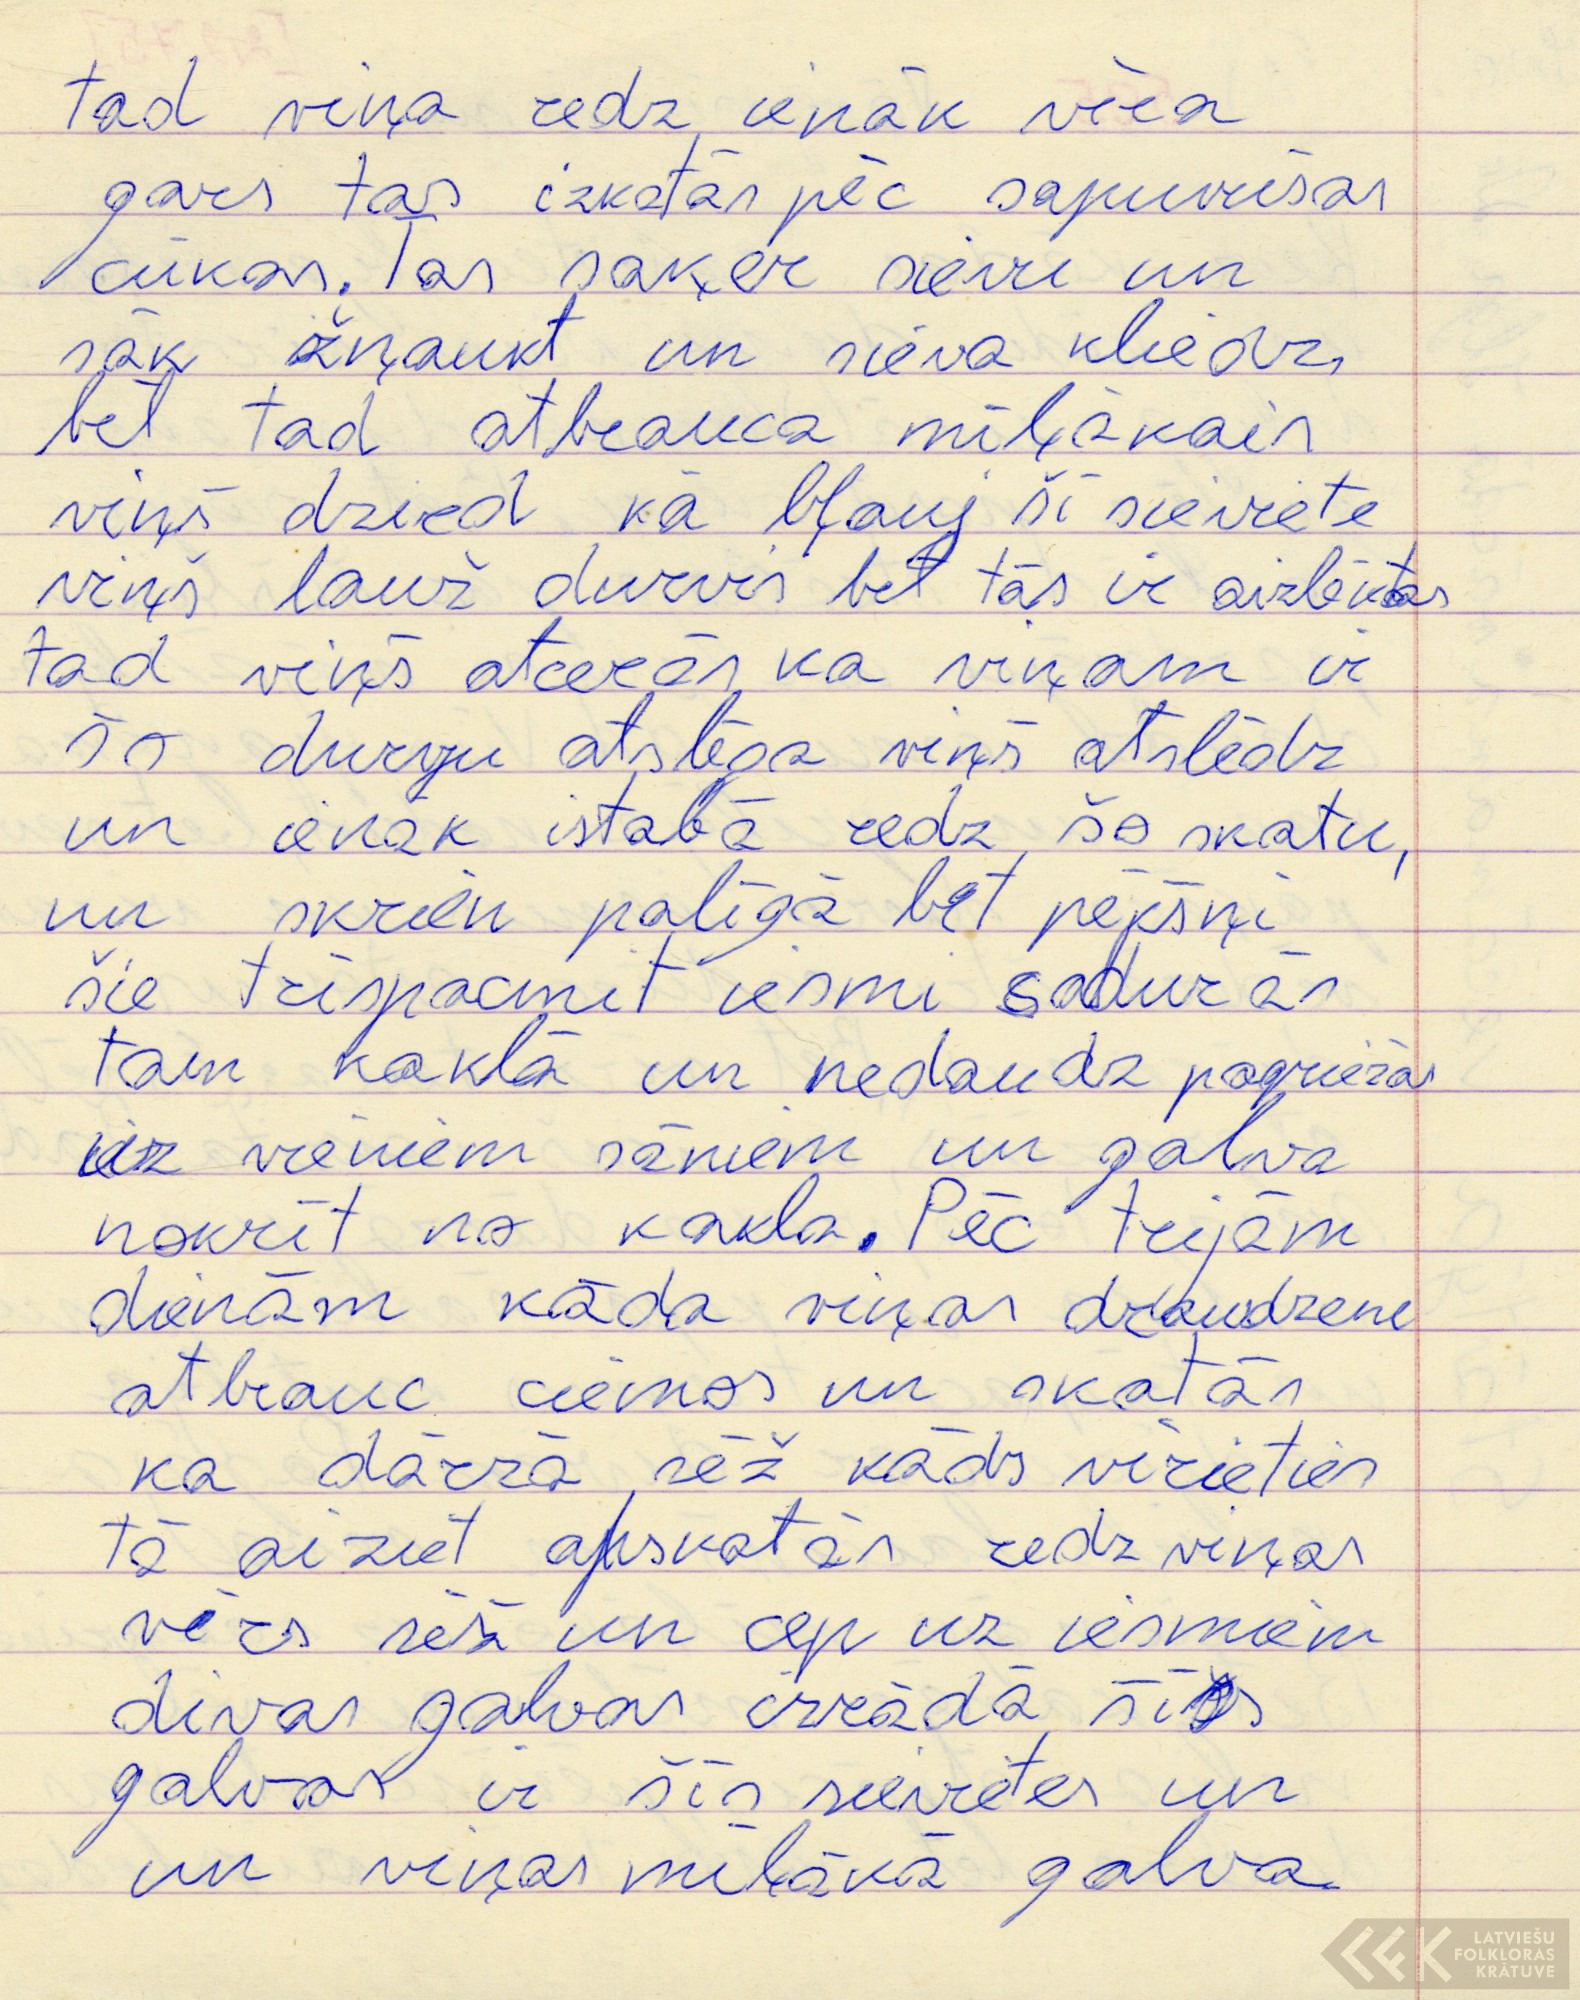 tad viņa redz ienāk vīra
gars tas izkatās pēc sapuvušas
cūkas. Tas saķer sievu un
sāk žņaukt un sieva kliedz,
bet tad atbrauca mīļākais
viņš dzird kā bļauj šī sieviete
viņš lauž durvis bet tās ir aizlēktas
tad viņš atcerās ka viņam ir
šo durvju atslēga viņš atslēdz
un ienāk istabā redz šo skatu,
un skrien palīgā bet pēkšņi
šie trīspacmit iesmi sadurās
tam kaklā un nedaudz pagriežās
uz vieniem sāniem un galva
nokrīt no kakla. Pēc trijām
dienām kāda viņas draudzene
atbrauc ciemos un skatās
ka dārzā sēž kāds vīrieties
tā aiziet apskatās redz viņas
vērs sēž un cep uz iesmiem
divas galvas izrādā šīs
galvas ir šīs sievietes un
un viņas mīļākā galva.
LATVIEŠU
FOLKLORAS
KRĀTUVE